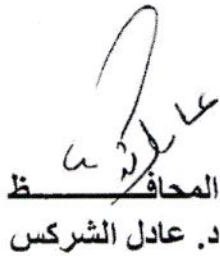 المحافـــــــظ
د. عادل الشركس